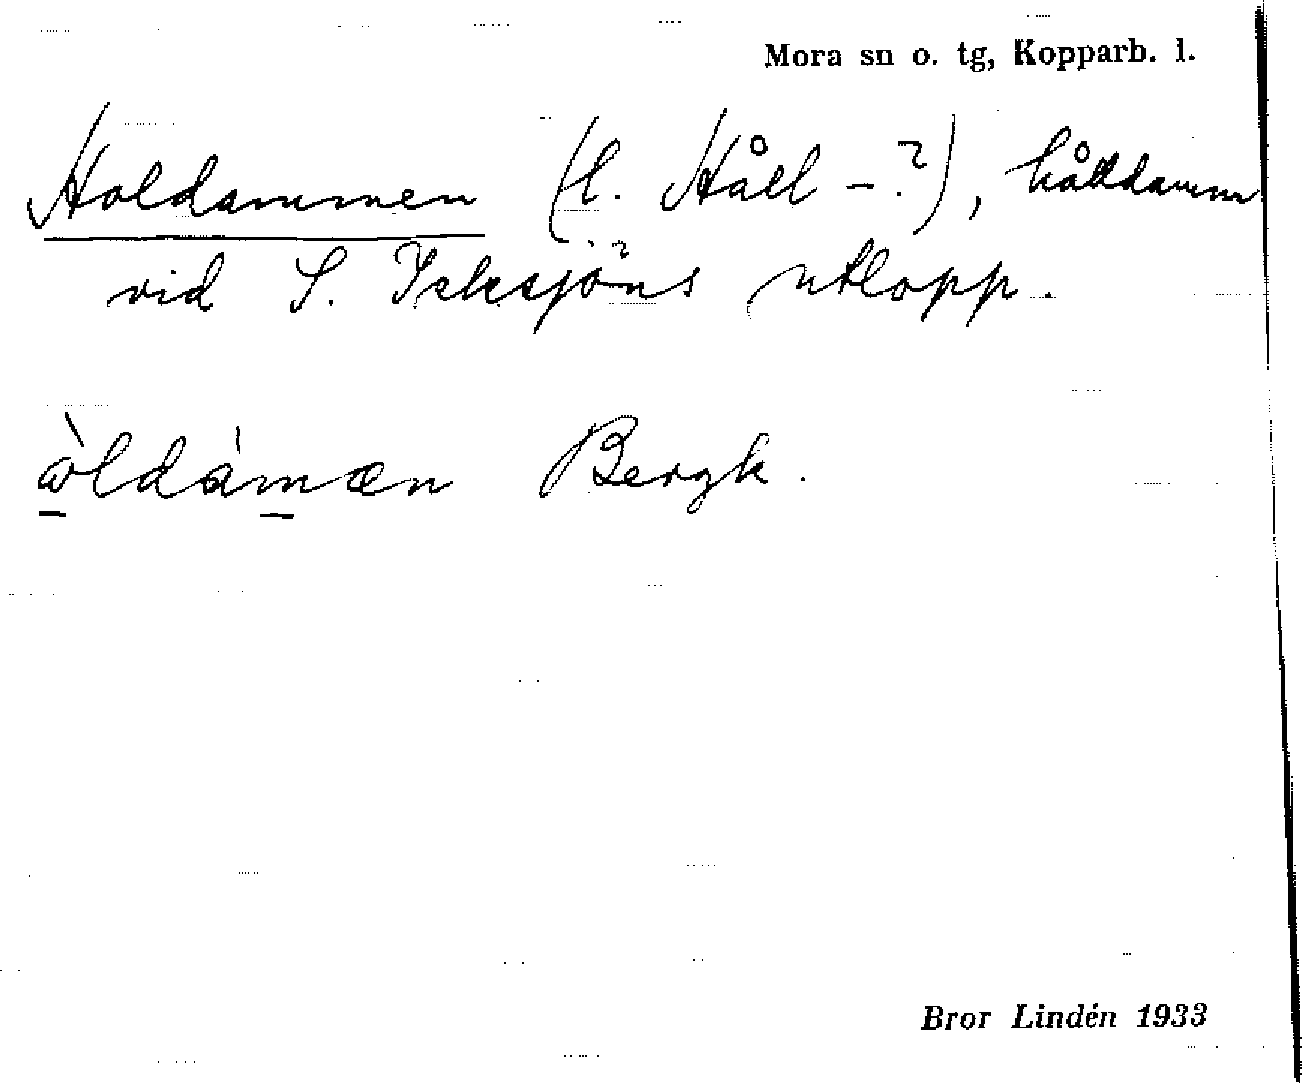 Mora sn o. tg, Kopparb. l.
Holdammen (l. Håll -?), hålldamm
vid S. Icksjöns utlopp.
òldámæn Bergk.
Bror Lindén 1933